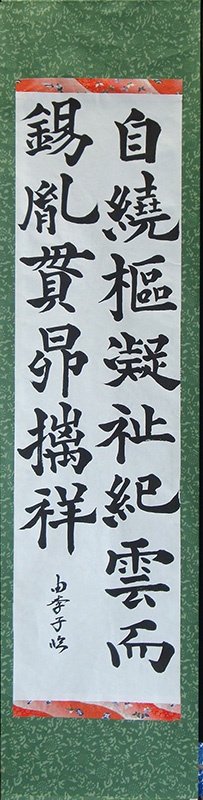 自繞樞凝祉紀雲而
錫胤貫昴摛祥
由季子臨